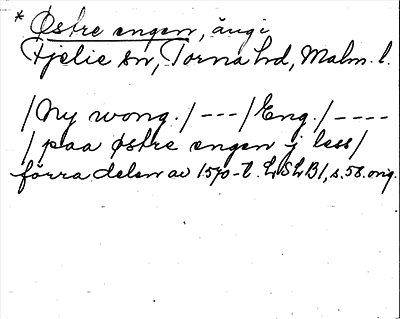 * Østre engen, äng i
Fjelie sn, Torna hd, Malm. l.
/Ny wong./ --- /Eng./ ----
/ paa østre engen j less /
förra delen av 1570-t. LSLB1, s. 58. orig.